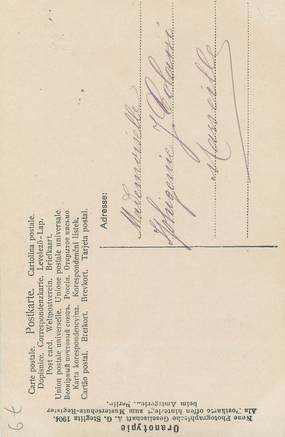 Carte postale. Postkarte. Cartolina postale.
Dopisnice. Correspondenzkarte. Levelező-Lap.
Post card. Weltpostverein. Briefkaart.
Union postale universelle. Unione postale universale.
Всемірный почтовый союзъ. Россія. Открытое письмо
Karta korespondencyjna. Korespondenční lístek.
Cartão postal. Bretkort. Brevkort. Tarjeta postal.
Adresse:
Mademoiselle
Iphigénie
Marseille
Oranotypie
Neue Photographische Gesellschaft A. G. Steglitz 1904.
Als Postkarte offen hinterlegt zum Musterschutz-Register
beim Amtsgericht Berlin.